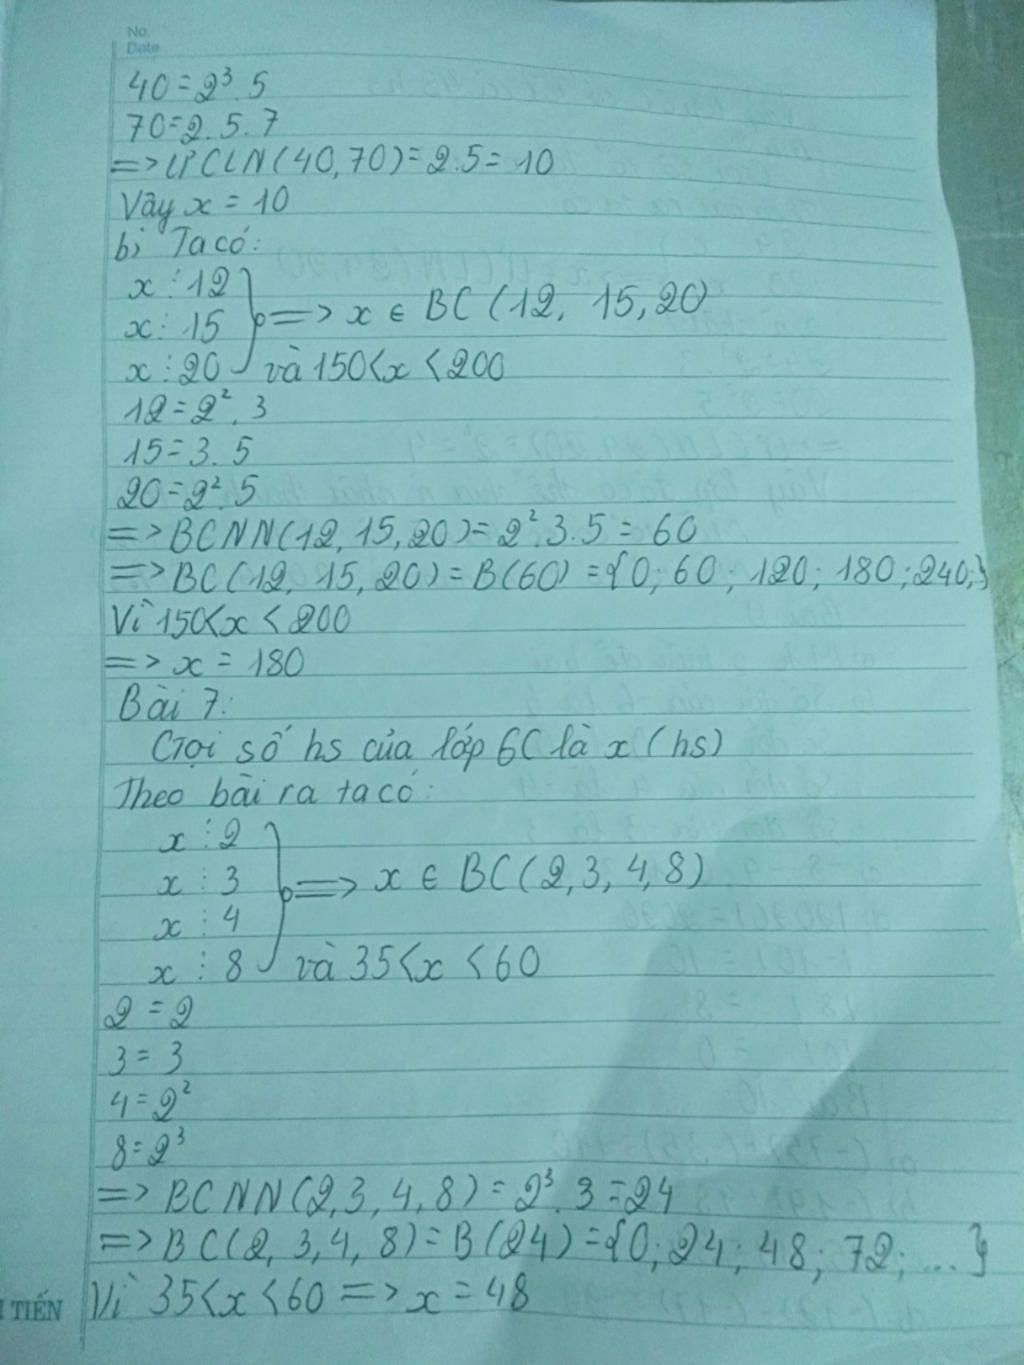 No.
Date
40 = 2³.5
70 = 2.5.7
=> ƯCLN(40,70) = 2.5 = 10
Vậy x = 10
b) Ta có:
x ⋮ 12
x ⋮ 15 => x ∈ BC (12, 15, 20)
x ⋮ 20 và 150 < x < 200
12 = 2². 3
15 = 3. 5
20 = 2². 5
=> BCNN(12, 15, 20) = 2².3.5 = 60
=> BC(12, 15, 20) = B(60) = {0; 60; 120; 180; 240;}
Vì 150 < x < 200
=> x = 180
Bài 7:
Gọi số hs của lớp 6C là x (hs)
Theo bài ra ta có:
x ⋮ 2
x ⋮ 3 => x ∈ BC(2,3,4,8)
x ⋮ 4
x ⋮ 8 và 35 < x < 60
2 = 2
3 = 3
4 = 2²
8 = 2³
=> BCNN(2,3,4,8) = 2³.3 = 24
=> BC(2, 3, 4, 8) = B(24) = {0; 24; 48; 72; ...}
Vì 35 < x < 60 => x = 48
TIẾN